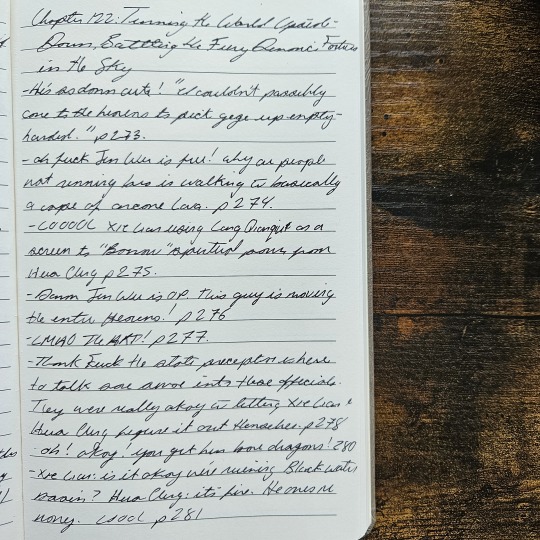 Chapter 122: Turning the World Upside-
Down, Battling the Fiery Demonic Fortress
in the Sky
- He's so damn cute! "I couldn't possibly
come to the heavens to pick gege up empty-
handed." p273.
- oh fuck Jun Wu is fire! why are people
not running bro is walking to basically
a cape of ancone lava. p274.
- LOOOOL Xie Lian using Lang Qianqiu as a
screen to "Borrow" spiritual power from
Hua Cheng p275.
- Damn Jun Wu is OP. This guy is moving
the entire Heavens! p276
- LMAO The ART! p277.
- Thank Fuck the state preceptor is here
to talk some sense into these officials.
They were really okay w letting Xie Lian &
Hua Cheng figure it out themselves. p278
- oh! okay. you got him bone dragons! 280
- Xie Lian: is it okay we're ruining Black Waters
basin? Hua Cheng: its fine. He owes me
money. LOOOL p281